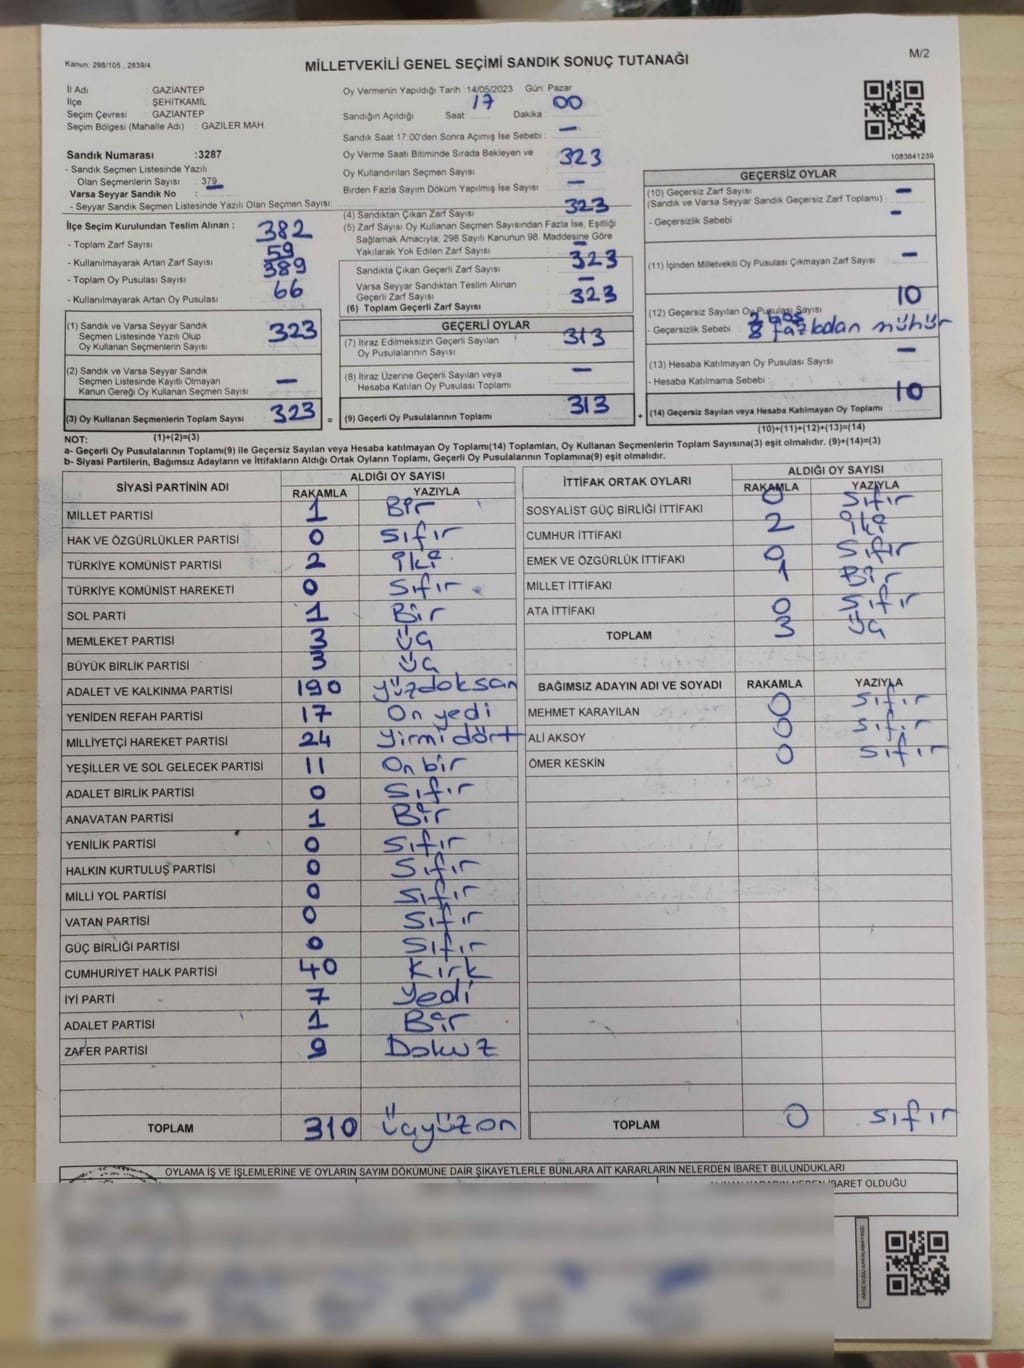 Kanun: 298/105 , 2839/4
MİLLETVEKİLİ GENEL SEÇİMİ SANDIK SONUÇ TUTANAĞI
M/2
İl Adı : GAZİANTEP
İlçe : ŞEHİTKAMİL
Seçim Çevresi : GAZİANTEP
Seçim Bölgesi (Mahalle Adı) : GAZİLER MAH.
Sandık Numarası :3287
- Sandık Seçmen Listesinde Yazılı
Olan Seçmenlerin Sayısı : 379
Varsa Seyyar Sandık No : —
- Seyyar Sandık Seçmen Listesinde Yazılı Olan Seçmen Sayısı:
Oy Vermenin Yapıldığı Tarih :14/05/2023 Gün: Pazar
Sandığın Açıldığı Saat 17 Dakika : 00
Sandık Saat 17:00'den Sonra Açımış İse Sebebi : —
Oy Verme Saati Bitiminde Sırada Bekleyen ve
Oy Kullandırılan Seçmen Sayısı : 323
Birden Fazla Sayım Döküm Yapılmış İse Sayısı : —
1083841239
İlçe Seçim Kurulundan Teslim Alınan :
- Toplam Zarf Sayısı : 382
- Kullanılmayarak Artan Zarf Sayısı : 59
- Toplam Oy Pusulası Sayısı : 389
- Kullanılmayarak Artan Oy Pusulası : 66
(1) Sandık ve Varsa Seyyar Sandık
Seçmen Listesinde Yazılı Olup
Oy Kullanan Seçmenlerin Sayısı 323
(2) Sandık ve Varsa Seyyar Sandık
Seçmen Listesinde Kayıtlı Olmayan
Kanun Gereği Oy Kullanan Seçmen Sayısı —
(3) Oy Kullanan Seçmenlerin Toplam Sayısı 323 =
(1)+(2)=(3)
(4) Sandıktan Çıkan Zarf Sayısı : 323
(5) Zarf Sayısı Oy Kullanan Seçmen Sayısından Fazla İse, Eşitliği
Sağlamak Amacıyla, 298 Sayılı Kanunun 98. Maddesine Göre
Yakılarak Yok Edilen Zarf Sayısı : —
Sandıkta Çıkan Geçerli Zarf Sayısı : 323
Varsa Seyyar Sandıktan Teslim Alınan
Geçerli Zarf Sayısı : —
(6) Toplam Geçerli Zarf Sayısı : 323
GEÇERLİ OYLAR
(7) İtiraz Edilmeksizin Geçerli Sayılan
Oy Pusulalarının Sayısı : 313
(8) İtiraz Üzerine Geçerli Sayılan veya
Hesaba Katılan Oy Pusulası Toplamı : —
(9) Geçerli Oy Pusulalarının Toplamı 313 +
GEÇERSİZ OYLAR
(10) Geçersiz Zarf Sayısı —
(Sandık ve Varsa Seyyar Sandık Geçersiz Zarf Toplamı) :
- Geçersizlik Sebebi : —
(11) İçinden Milletvekili Oy Pusulası Çıkmayan Zarf Sayısı : —
(12) Geçersiz Sayılan Oy Pusulası Sayısı : 10
- Geçersizlik Sebebi : 2 boş
8 fazladan mühür
(13) Hesaba Katılmayan Oy Pusulası Sayısı : —
- Hesaba Katılmama Sebebi :
(14) Geçersiz Sayılan veya Hesaba Katılmayan Oy Toplamı : 10
(10)+(11)+(12)+(13)=(14)
NOT:
a- Geçerli Oy Pusulalarının Toplamı(9) ile Geçersiz Sayılan veya Hesaba katılmayan Oy Toplamı(14) Toplamları, Oy Kullanan Seçmenlerin Toplam Sayısına(3) eşit olmalıdır. (9)+(14)=(3)
b- Siyasi Partilerin, Bağımsız Adayların ve İttifakların Aldığı Ortak Oyların Toplamı, Geçerli Oy Pusulalarının Toplamına(9) eşit olmalıdır.
SİYASİ PARTİNİN ADI ALDIĞI OY SAYISI
RAKAMLA YAZIYLA
MİLLET PARTİSİ 1 Bir
HAK VE ÖZGÜRLÜKLER PARTİSİ 0 Sıfır
TÜRKİYE KOMÜNİST PARTİSİ 2 iki
TÜRKİYE KOMÜNİST HAREKETİ 0 Sıfır
SOL PARTİ 1 Bir
MEMLEKET PARTİSİ 3 Üç
BÜYÜK BİRLİK PARTİSİ 3 Üç
ADALET VE KALKINMA PARTİSİ 190 yüzdoksan
YENİDEN REFAH PARTİSİ 17 On yedi
MİLLİYETÇİ HAREKET PARTİSİ 24 yirmi dört
YEŞİLLER VE SOL GELECEK PARTİSİ 11 On bir
ADALET BİRLİK PARTİSİ 0 Sıfır
ANAVATAN PARTİSİ 1 Bir
YENİLİK PARTİSİ 0 Sıfır
HALKIN KURTULUŞ PARTİSİ 0 Sıfır
MİLLİ YOL PARTİSİ 0 Sıfır
VATAN PARTİSİ 0 Sıfır
GÜÇ BİRLİĞİ PARTİSİ 0 Sıfır
CUMHURİYET HALK PARTİSİ 40 Kırk
İYİ PARTİ 7 yedi
ADALET PARTİSİ 1 Bir
ZAFER PARTİSİ 9 Dokuz
TOPLAM 310 üçyüzon
İTTİFAK ORTAK OYLARI ALDIĞI OY SAYISI
RAKAMLA YAZIYLA
SOSYALİST GÜÇ BİRLİĞİ İTTİFAKI 0 Sıfır
CUMHUR İTTİFAKI 2 iki
EMEK VE ÖZGÜRLÜK İTTİFAKI 0 Sıfır
MİLLET İTTİFAKI 1 Bir
ATA İTTİFAKI 0 Sıfır
TOPLAM 3 Üç
BAĞIMSIZ ADAYIN ADI VE SOYADI RAKAMLA YAZIYLA
MEHMET KARAYILAN 0 Sıfır
ALİ AKSOY 0 Sıfır
ÖMER KESKİN 0 Sıfır
TOPLAM 0 sıfır
OYLAMA İŞ VE İŞLEMLERİNE VE OYLARIN SAYIM DÖKÜMÜNE DAİR ŞİKAYETLERLE BUNLARA AİT KARARLARIN NELERDEN İBARET BULUNDUKLARI
İBARET OLDUĞU